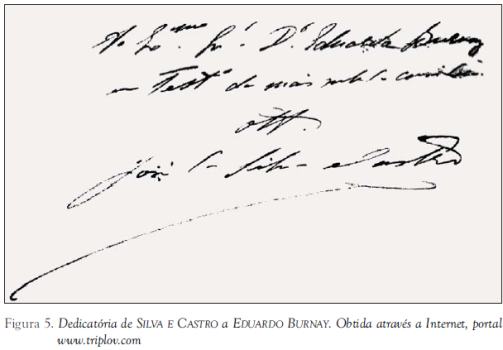 Ao Ex.mo Sr. Dr. Eduardo Burnay
em Test.o da mais
off.
José Silva e Castro
Figura 5. Dedicatória de SILVA E CASTRO a EDUARDO BURNAY. Obtida através a Internet, portal
www.triplov.com